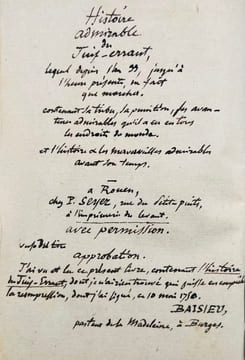 Histoire
admirable
du
Juif-errant,
lequel depuis l'an 33, jusqu'à
l'heure présente, ne fait
que marcher.
contenant sa tribu, sa punition, les aven-
tures admirables qu'il a eu en tous
les endroits du monde.
et l'histoire & les merveilles admirables
avant son temps.
à Rouen,
chez P. Seyer, rue du Petit-puits,
à l'imprimerie du Levant.
avec permission.
approbation.
J'ai vu et lu ce présent livre, contenant l'histoire
du Juif-Errant, dont je n'ai rien trouvé qui puisse en empêcher
la réimpression, dont j'ai signé, ce 10 mai 1710.
BAISIEU,
pasteur de la Madeleine, à Burges.